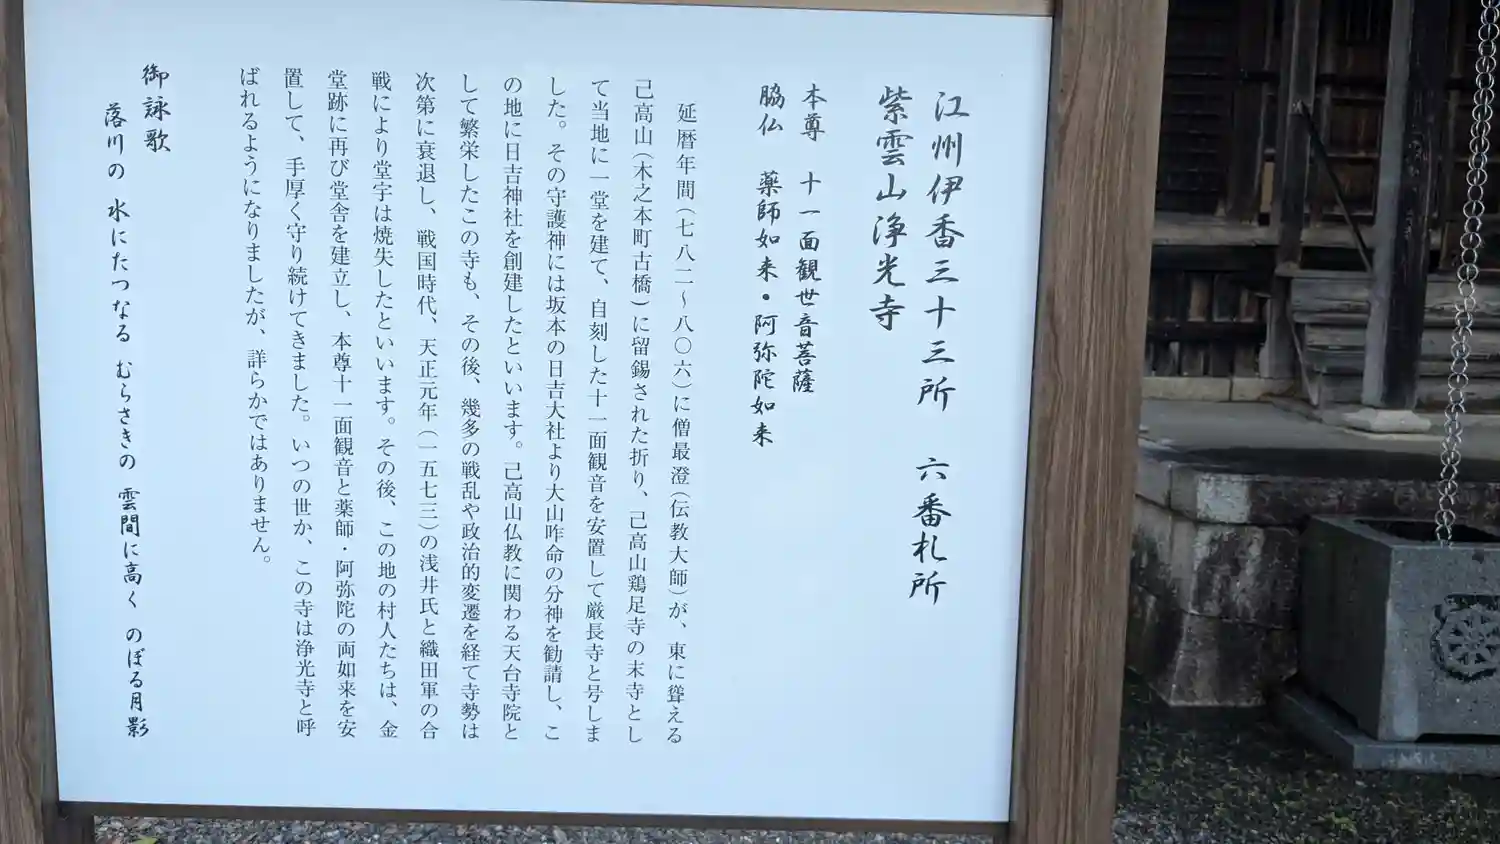 江州伊香三十三所　六番札所
紫雲山浄光寺
本尊　十一面観世音菩薩
脇仏　薬師如来・阿弥陀如来
延暦年間（七八二～八〇六）に僧最澄（伝教大師）が、東に聳える
己高山（木之本町古橋）に留錫された折り、己高山鶏足寺の末寺とし
て当地に一堂を建て、自刻した十一面観音を安置して厳長寺と号しま
した。その守護神には坂本の日吉大社より大山咋命の分神を勧請し、こ
の地に日吉神社を創建したといいます。己高山仏教に関わる天台寺院と
して繁栄したこの寺も、その後、幾多の戦乱や政治的変遷を経て寺勢は
次第に衰退し、戦国時代、天正元年（一五七三）の浅井氏と織田軍の合
戦により堂宇は焼失したといいます。その後、この地の村人たちは、金
堂跡に再び堂舎を建立し、本尊十一面観音と薬師・阿弥陀の両如来を安
置して、手厚く守り続けてきました。いつの世か、この寺は浄光寺と呼
ばれるようになりましたが、詳らかではありません。
御詠歌
落川の　水にたつなる　むらさきの　雲間に高く　のぼる月影